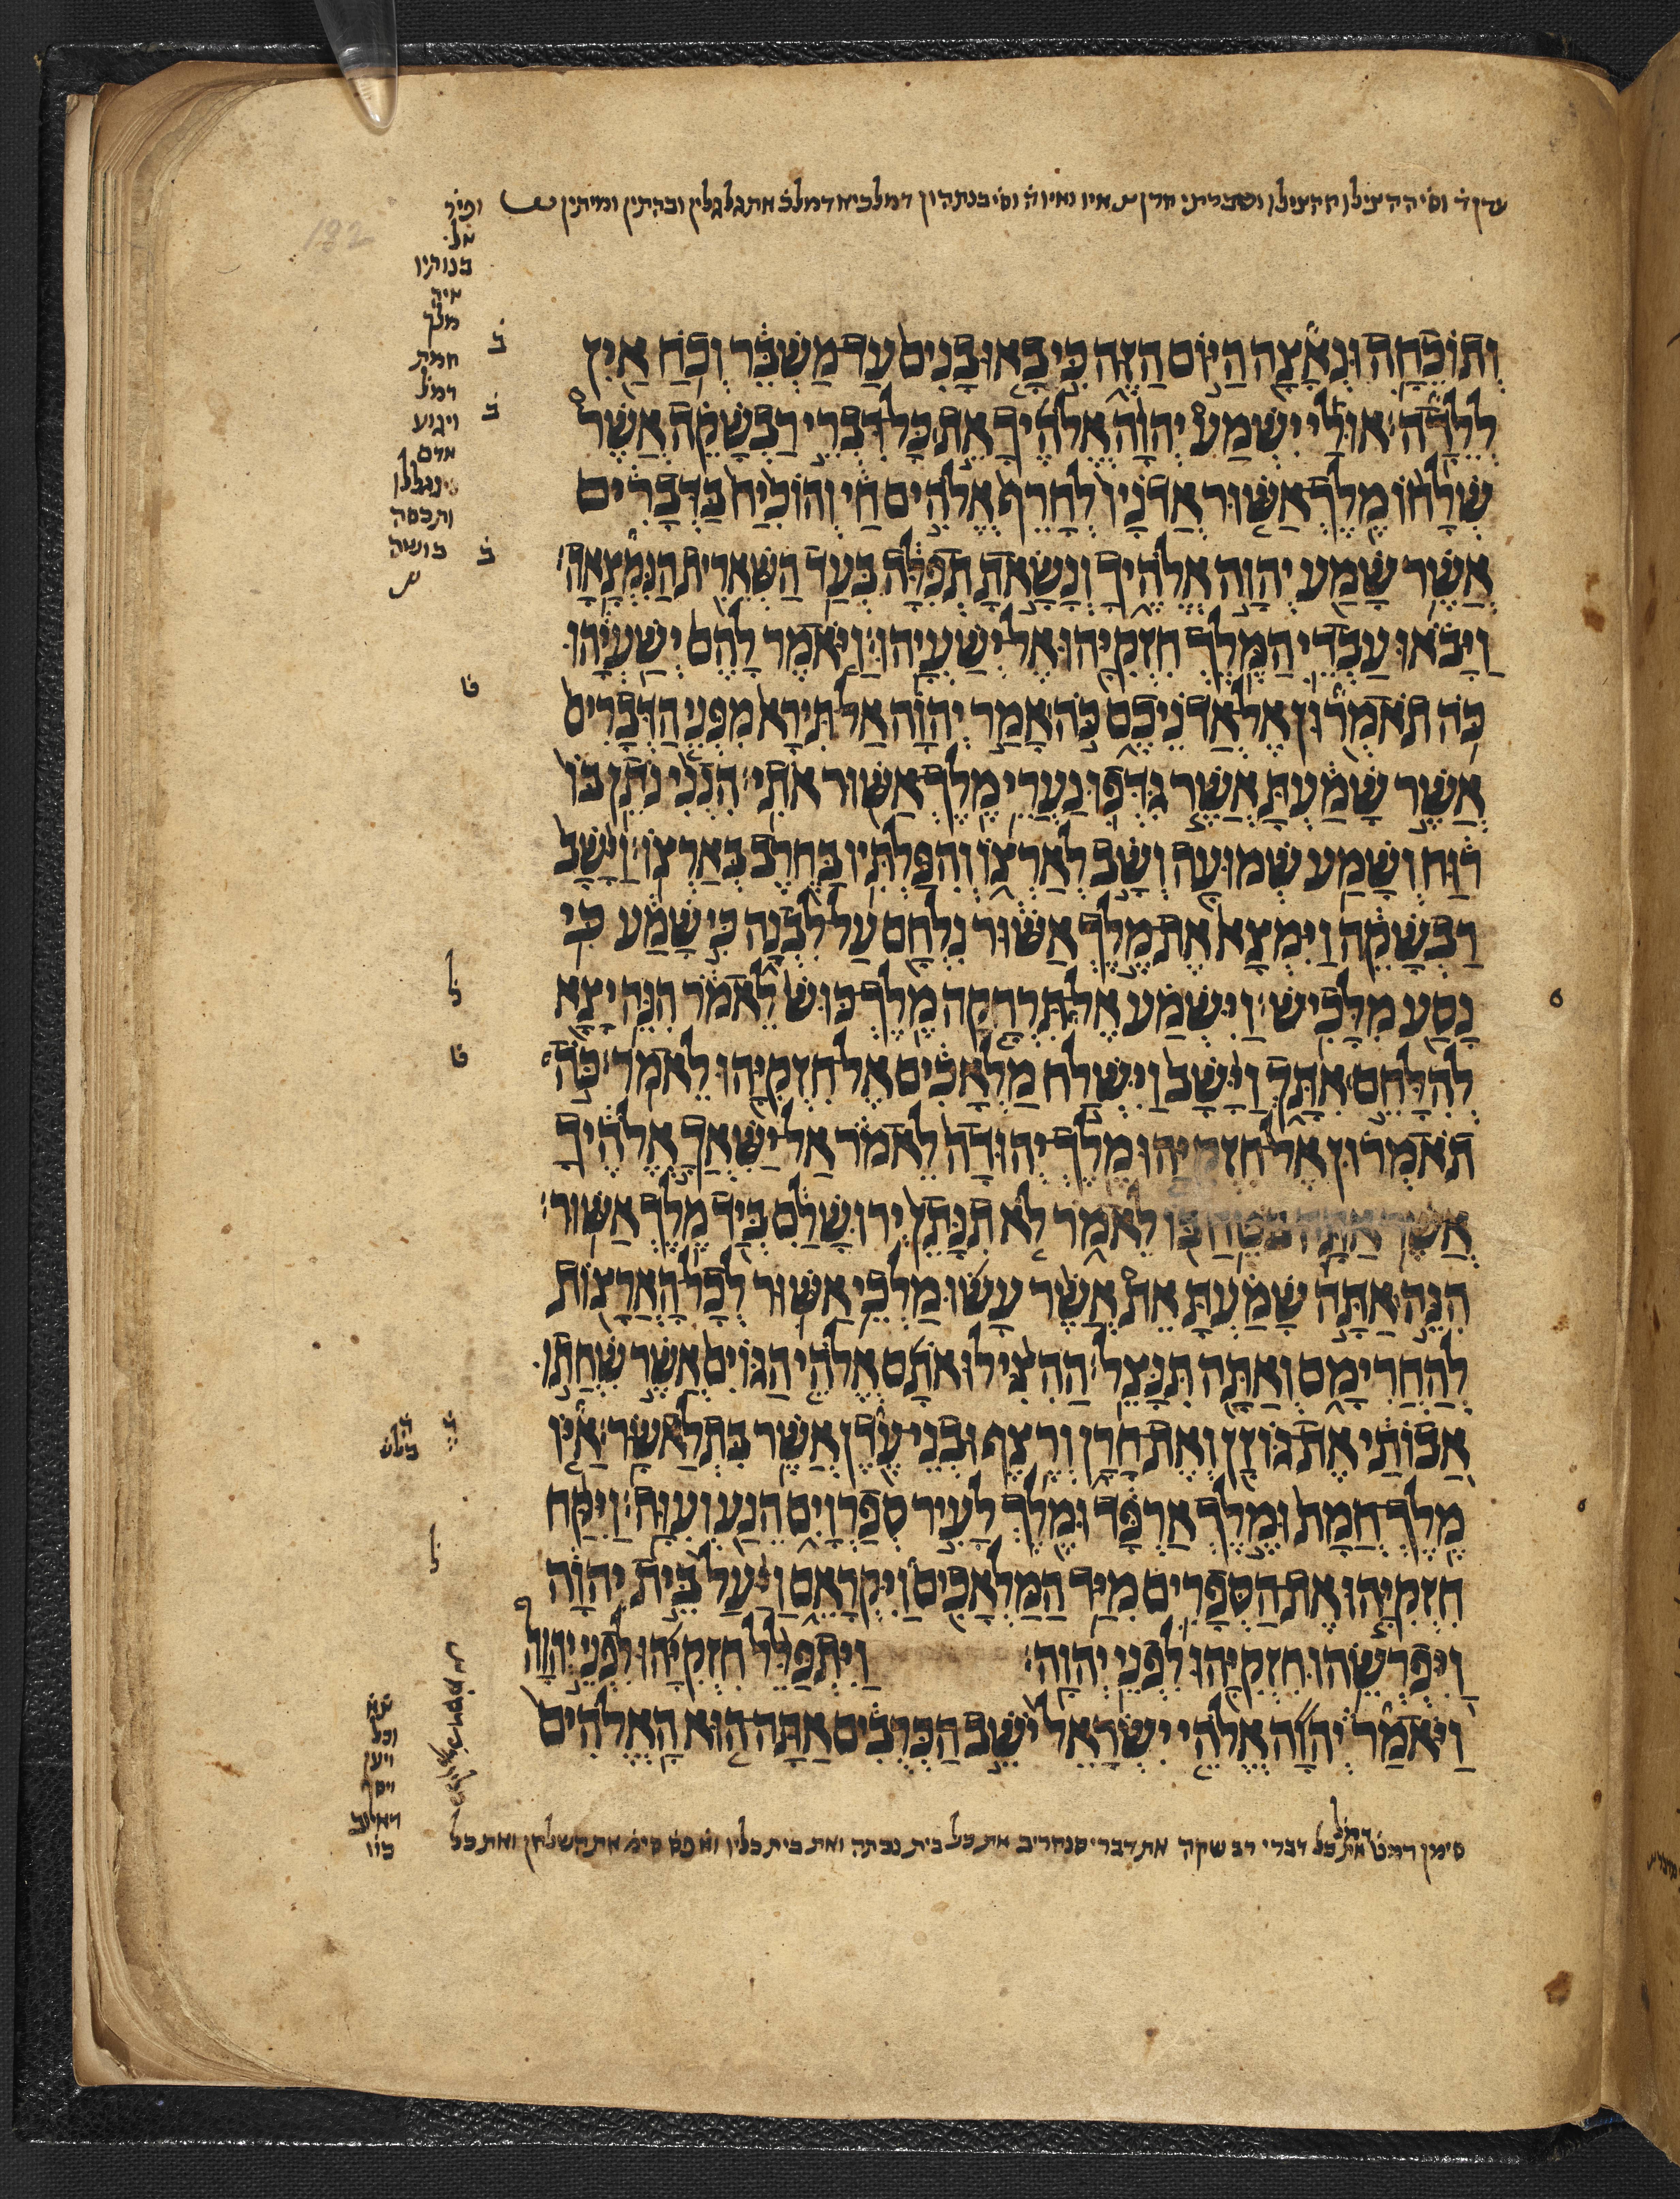 וְתוֹכֵחָה וּנְאָצָה הַיּוֹם הַזֶּה כִּי בָאוּ בָנִים עַד מַשְׁבֵּר וְכֹחַ אַיִן
לְלֵדָה׃ אוּלַי יִשְׁמַע יְהוָה אֱלֹהֶיךָ אֵת כָּל דִּבְרֵי רַבְשָׁקֵה אֲשֶׁר
שְׁלָחוֹ מֶלֶךְ אַשּׁוּר אֲדֹנָיו לְחָרֵף אֱלֹהִים חַי וְהוֹכִיחַ בַּדְּבָרִים
אֲשֶׁר שָׁמַע יְהוָה אֱלֹהֶיךָ וְנָשָׂאתָ תְפִלָּה בְּעַד הַשְּׁאֵרִית הַנִּמְצָאָה׃
וַיָּבֹאוּ עַבְדֵי הַמֶּלֶךְ חִזְקִיָּהוּ אֶל יְשַׁעְיָהוּ׃ וַיֹּאמֶר לָהֶם יְשַׁעְיָהוּ
כֹּה תֹאמְרוּן אֶל אֲדֹנֵיכֶם כֹּה אָמַר יְהוָה אַל תִּירָא מִפְּנֵי הַדְּבָרִים
אֲשֶׁר שָׁמַעְתָּ אֲשֶׁר גִּדְּפוּ נַעֲרֵי מֶלֶךְ אַשּׁוּר אֹתִי׃ הִנְנִי נֹתֵן בּוֹ
רוּחַ וְשָׁמַע שְׁמוּעָה וְשָׁב לְאַרְצוֹ וְהִפַּלְתִּיו בַּחֶרֶב בְּאַרְצוֹ׃ וַיָּשָׁב
רַבְשָׁקֵה וַיִּמְצָא אֶת מֶלֶךְ אַשּׁוּר נִלְחָם עַל לִבְנָה כִּי שָׁמַע כִּי
נָסַע מִלָּכִישׁ׃ וַיִּשְׁמַע אֶל תִּרְהָקָה מֶלֶךְ כּוּשׁ לֵאמֹר הִנֵּה יָצָא
לְהִלָּחֵם אִתָּךְ וַיָּשָׁב וַיִּשְׁלַח מַלְאָכִים אֶל חִזְקִיָּהוּ לֵאמֹר׃ כֹּה
תֹאמְרוּן אֶל חִזְקִיָּהוּ מֶלֶךְ יְהוּדָה לֵאמֹר אַל יַשִּׁאֲךָ אֱלֹהֶיךָ
אֲשֶׁר אַתָּה בֹּטֵחַ בּוֹ לֵאמֹר לֹא תִנָּתֵן יְרוּשָׁלַםִ בְּיַד מֶלֶךְ אַשּׁוּר׃
הִנֵּה אַתָּה שָׁמַעְתָּ אֵת אֲשֶׁר עָשׂוּ מַלְכֵי אַשּׁוּר לְכָל הָאֲרָצוֹת
לְהַחֲרִימָם וְאַתָּה תִּנָּצֵל׃ הַהִצִּילוּ אֹתָם אֱלֹהֵי הַגּוֹיִם אֲשֶׁר שִׁחֲתוּ
אֲבוֹתַי אֶת גּוֹזָן וְאֶת חָרָן וְרֶצֶף וּבְנֵי עֶדֶן אֲשֶׁר בִּתְלַאשָּׂר׃ אַיּוֹ
מֶלֶךְ חֲמָת וּמֶלֶךְ אַרְפָּד וּמֶלֶךְ לָעִיר סְפַרְוָיִם הֵנַע וְעִוָּה׃ וַיִּקַּח
חִזְקִיָּהוּ אֶת הַסְּפָרִים מִיַּד הַמַּלְאָכִים וַיִּקְרָאֵם וַיַּעַל בֵּית יְהוָה
וַיִּפְרְשֵׂהוּ חִזְקִיָּהוּ לִפְנֵי יְהוָה׃ וַיִּתְפַּלֵּל חִזְקִיָּהוּ לִפְנֵי יְהוָה
וַיֹּאמַר יְהוָה אֱלֹהֵי יִשְׂרָאֵל יֹשֵׁב הַכְּרֻבִים אַתָּה הוּא הָאֱלֹהִים
בנותיו
איה
מלך
חמת
ויגוע
אדם
ותכסה
בושה
וכל
ויען
ויסף
סימן את כל דברי רב שקה את דברי סנחריב את כל בית נכתה ואת בית כליו את השלחן ואת כל